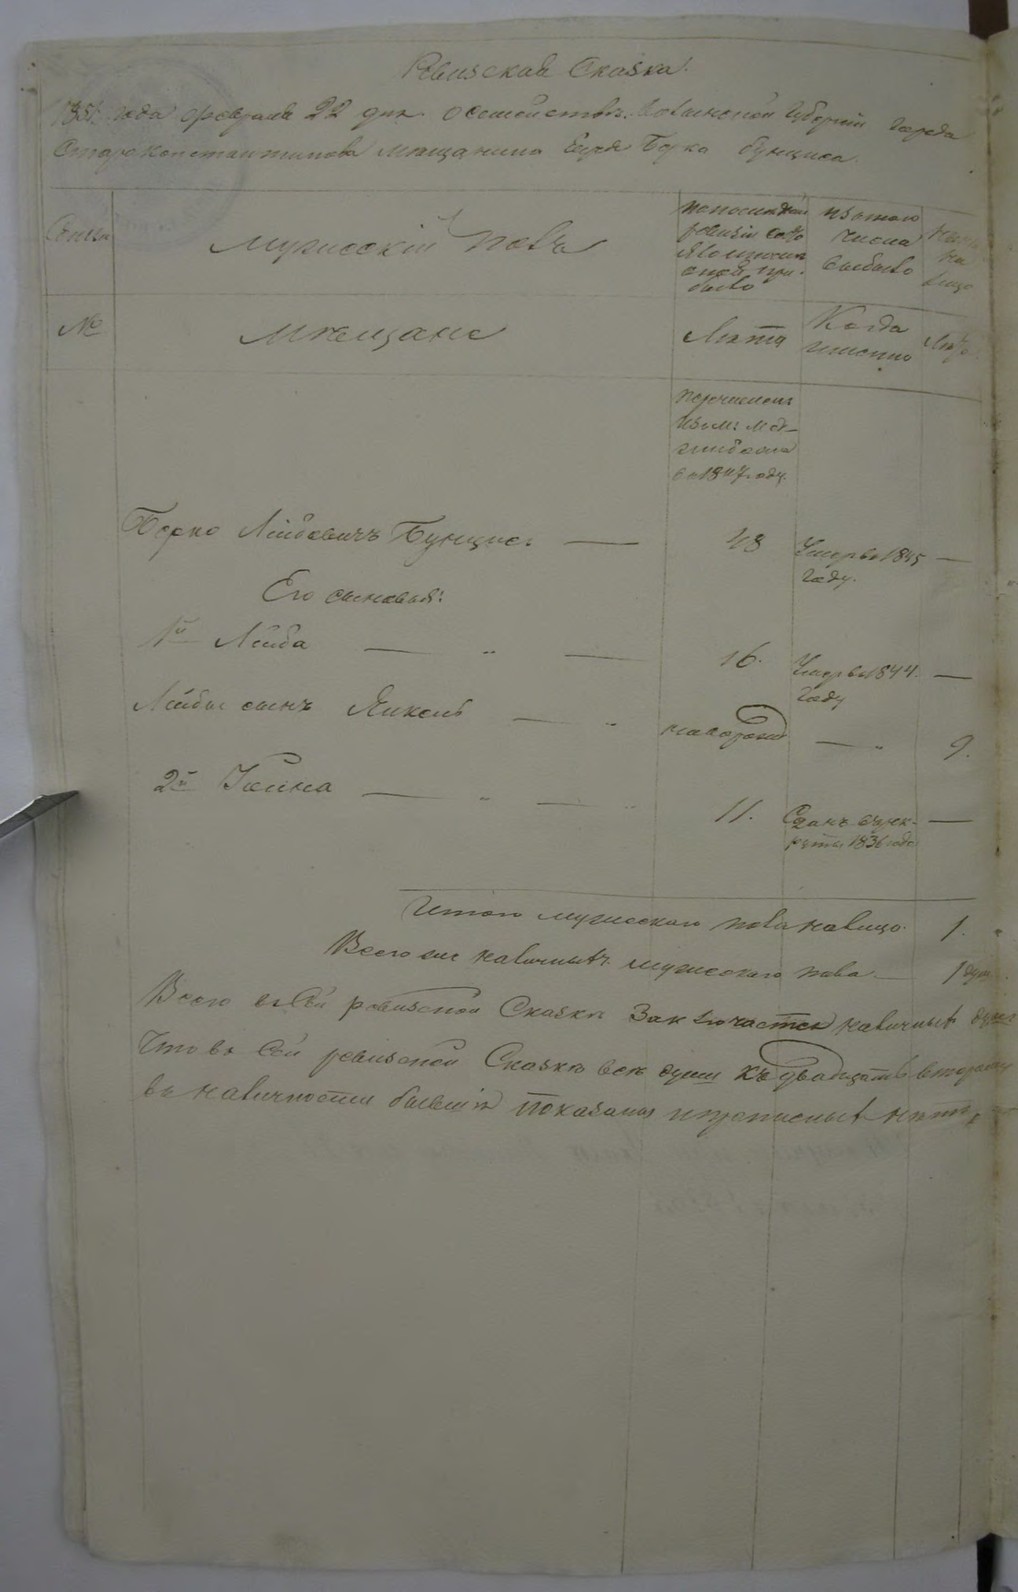 Ревизская Сказка.
185 года февраля 22 дня о семействе Волынской Губернии Города
Староконстантинова мещанина Еврея Берка Бунциса.
Семьи
Мужеский полъ
по последней ревизии состояло и после оной прибыло
изъ того числа выбыло
Ныне на лицо
№
Мещане
Лета
Когда именно
Лета
перечисленъ
изъ м: Мед-
жибожа
въ 1847 году
Берко Лейбовичъ Бунцис. — 48 Умеръ въ 1845 —
году.
Его сыновья:
1й Лейба — „ — 16. Умеръ в 1844. —
году
Лейбы сынъ Янкель — „ новорожд — „ 9.
2й Хаина — „ — „ 11. Сданъ въ рек- —
руты 1836 года
Итого мужеского пола на лицо. 1.
Всего наличныхъ мужеского пола — 1 душ
Всего въ сей ревизской Сказке Заключается наличныхъ душъ
Что въ Сей ревизской Сказке все души къ двадцать второму
въ наличности бывшия показаны и прописныхъ нетъ,